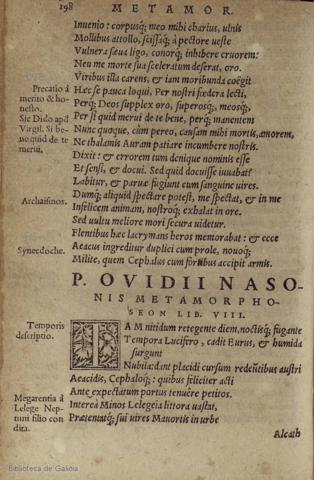 198
METAMOR.
Inuenio: corpusq; meo mihi charius, vlnis
Mollibus attollo, scissaq; à pectore veste
Vulnera sæua ligo, conorq; inhibere cruorem:
Neu me morte sua sceleratum deserat, oro.
Viribus illa carens, & iam moribunda coëgit
Precatio á
merito & ho-
nesto.
Sic Dido apd
Virgil. Si be-
ne quid de te
merui.
Hæc se pauca loqui, Per nostri fœdera lecti,
Perq; Deos supplex oro, superosq;, meosq;,
Per si quid merui de te bene, perq; manentem
Nunc quoque, cùm pereo, causam mihi mortis, amorem,
Ne thalamis Auram patiare incumbere nostris.
Dixit: & errorem tum denique nominis esse
Et sensi, & docui. Sed quid docuisse iuuabat?
Labitur, & paruæ fugiunt cum sanguine vires.
Archaismos.
Dumq; aliquid spectare potest, me spectat, & in me
Infelicem animam, nostroq; exhalat in ore.
Sed vultu meliore mori secura videtur.
Flentibus hæc lacrymans heros memorabat: & ecce
Synecdoche.
Aeacus ingreditur duplici cum prole, nouoq;
Milite, quem Cephalus cum fortibus accipit armis.
P. OVIDII NASO-
NIS METAMORPHO-
SEON LIB. VIII.
Temporis
descriptio.
IAM nitidum retegente diem, noctisq; fugante
Tempora Lucifero, cadit Eurus, & humida
surgunt
Nubila: dant placidi cursum redeũtibus austri
Aeacidis, Cephaloq; : quibus feliciter acti
Ante expectatum portus tenuêre petitos.
Megarentia á
Lelege Nep-
tuni filio con
dita.
Intereà Minos Lelegeia littora vastat,
Prætentatq; sui vires Mauortis in vrbe
Alcath
Biblioteca de Galicia